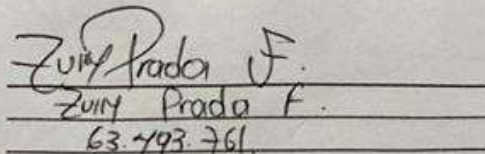 Zuiny Prada F.
Zuiny Prada F.
63.493.761